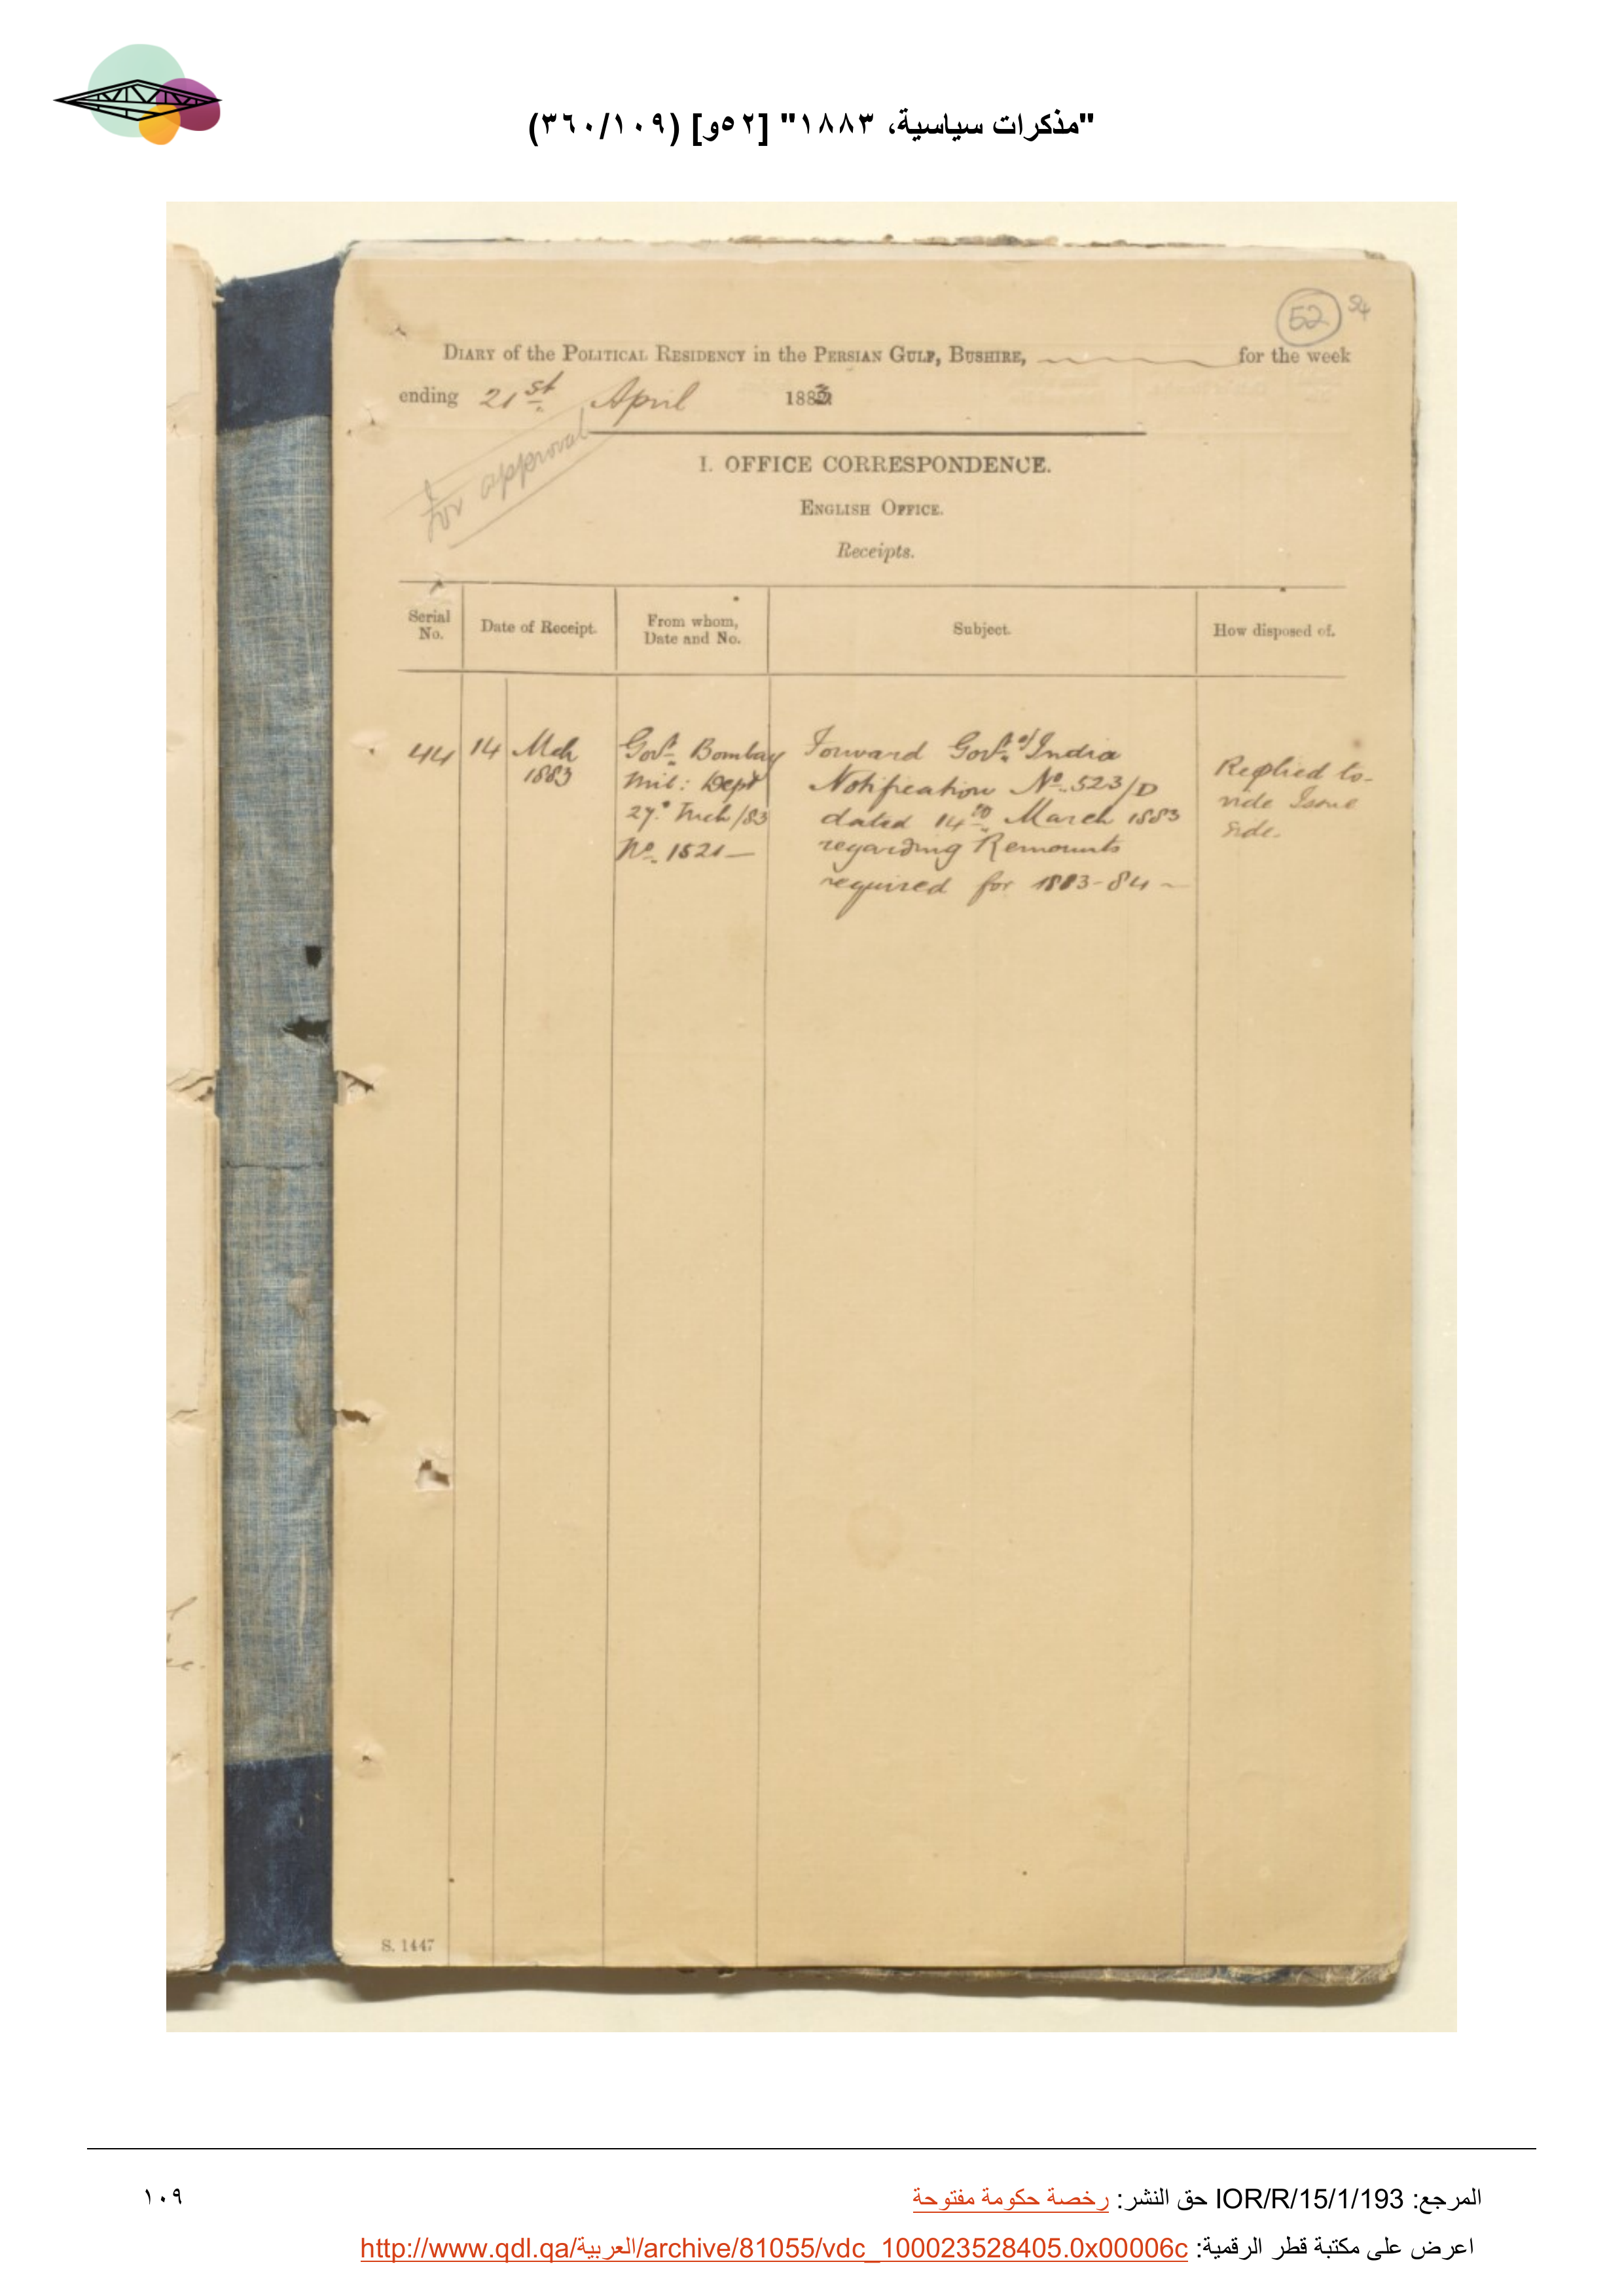 "مذكرات سياسية، ١٨٨٣" [٥٢و] (٣٦٠/١٠٩)
52
DIARY of the POLITICAL RESIDENCY in the PERSIAN GULF, BUSHIRE, for the week
ending 21st April 1883
For approval
I. OFFICE CORRESPONDENCE.
ENGLISH OFFICE.
Receipts.
Serial No.
Date of Receipt.
From whom, Date and No.
Subject.
How disposed of.
44
14 Mch
1883
Govt. Bombay
Mil: Dept
27° Mch/83
No. 1521—
Forward Govt. of India
Notification No. 523/D
dated 14th March 1883
regarding Remounts
required for 1883-84 —
Replied to-
vide Issue
side.
S. 1447
المرجع: IOR/R/15/1/193 حق النشر: رخصة حكومة مفتوحة
١٠٩
اعرض على مكتبة قطر الرقمية: http://www.qdl.qa/العربية/archive/81055/vdc_100023528405.0x00006c